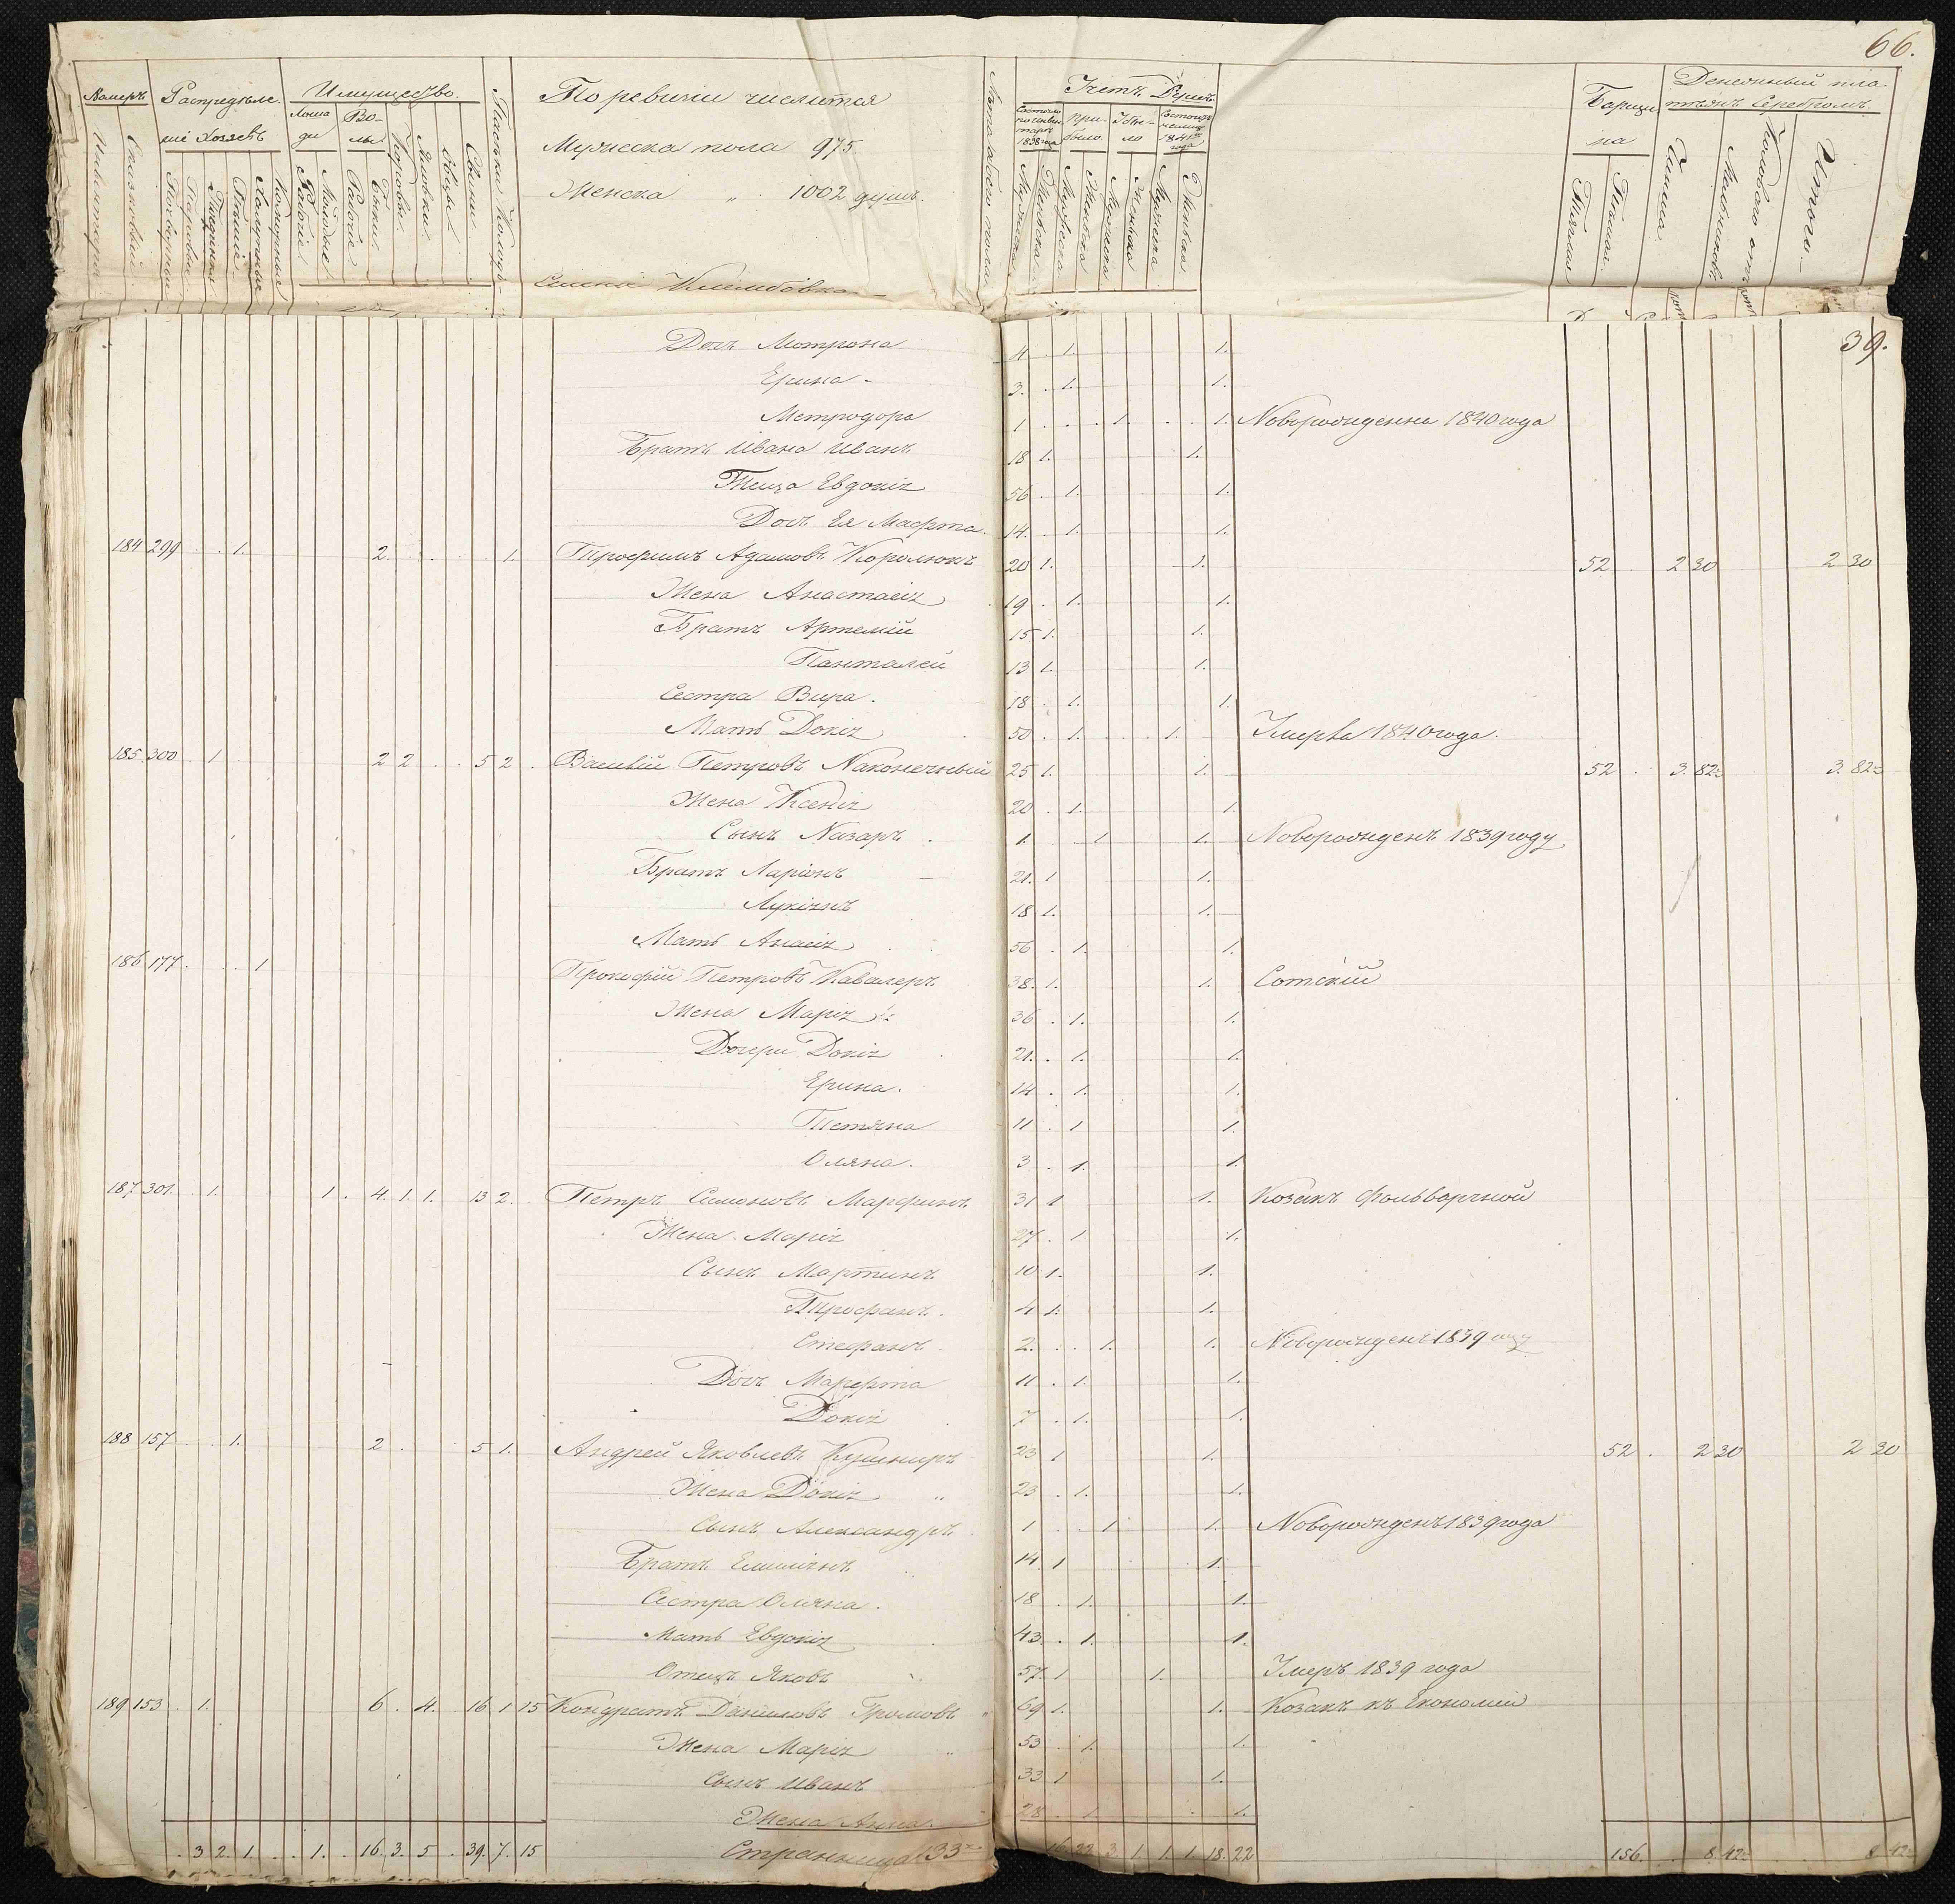 66.
Номеръ
Инвентарн.
Сказковый
Распредѣле-
ніе Хозяевъ
Имущество.
Лоша
ди
Рабочіе
Молодые
Во-
лы
Рабочіе
Бычки
Коровы
Яловки
Овцы
Свиньи
По ревизіи числится
Мужеска пола 975.
Женска „ 1002 душъ.
Лѣта обоего пола
Учетъ Душъ
Состояло
по инвен
тарю
1838 года
При-
было
Убы-
ло
Барщи
на
Тяглая
Пѣшая
Денежный пла-
тежъ Серебромъ
Чинша
Итого.
39.
Дочь Мотрона 4 . 1. 1.
Ерина 3. . 1. 1.
Метродора 1 . . . 1. . . 1. Новорожденна 1840 года
Братъ Ивана Иванъ 18 1. 1.
Теща Евдокія 56 . 1. 1.
Дочь Ея Марфта 14. . 1. 1.
184 299 . . 1. 2. . . 1. Трофимъ Адамовъ Королюкъ 20 1. 1. 52 2 30 2 30
Жена Анастасія 19 . 1. 1.
Братъ Артемій 15 1. 1.
Панталей 13 1. 1.
Сестра Вира. 18 . 1. 1.
Мать Докія 50 . 1. . . 1. Умерла 1840 года.
185 300 . 1 2 2 . . 5 2 . Василій Петровъ Наконечный 25 1. 1. 52 . 3. 82 3. 82
Жена Ксенія 20 . 1. 1.
Сынъ Назаръ 1. . 1 1. Новорожденъ 1839 году
Братъ Ларіонъ 21. 1 1.
Лукіянъ 18 1. 1.
Мать Анасія 56 . 1. 1.
186 177. . . 1 Прокофій Петровъ Кавалеръ 38. 1. 1. Сотскій
Жена Марія 36 . 1. 1.
Дочери Докія 21. . 1. 1.
Ерина. 14 . 1. 1.
Тетяна 11 . 1 1.
Оляна. 3 . 1. 1.
187 301. . 1. 1 . 4. 1. 1. 13 2. Петръ Симоновъ Марфинъ 31 1 1. Козакъ фольварчной
Жена Марія 27 . 1. 1.
Сынъ Мартинъ 10 1. 1.
Трофанъ. 4 1. 1.
Стефанъ 2. . . 1. 1. Новорожденъ 1839 году
Дочь Марфта 11 . 1. 1.
Докія 7 . 1. 1.
188 157 . . 1. 2 . . . 5 1. Андрей Яковлевъ Кушниръ 23 1 1. 52 . 2 30 2 30
Жена Докія 23 . 1. 1.
Сынъ Александръ 1 . . 1 1. Новорожденъ 1839 года
Братъ Емиліянъ 14. 1 1.
Сестра Оляна. 18 . 1. 1.
Мать Евдокія 43 . 1. 1.
Отецъ Яковъ 57. 1 1. Умеръ 1839 года
189 153 . 1. 6 . 4. 16 1 15 Кондратъ Даниловъ Громовъ 69 1. 1. Козакъ къ Економіи
Жена Марія 53 . 1. 1.
Сынъ Иванъ 33 1 1.
Жена Анна. 28 . 1. 1.
. 3 2 1 . . 1. . 16. 3. 5 . 39. 7. 15 16 22 3 1. 1. 1. 18. 22 156. 8. 42 8 42